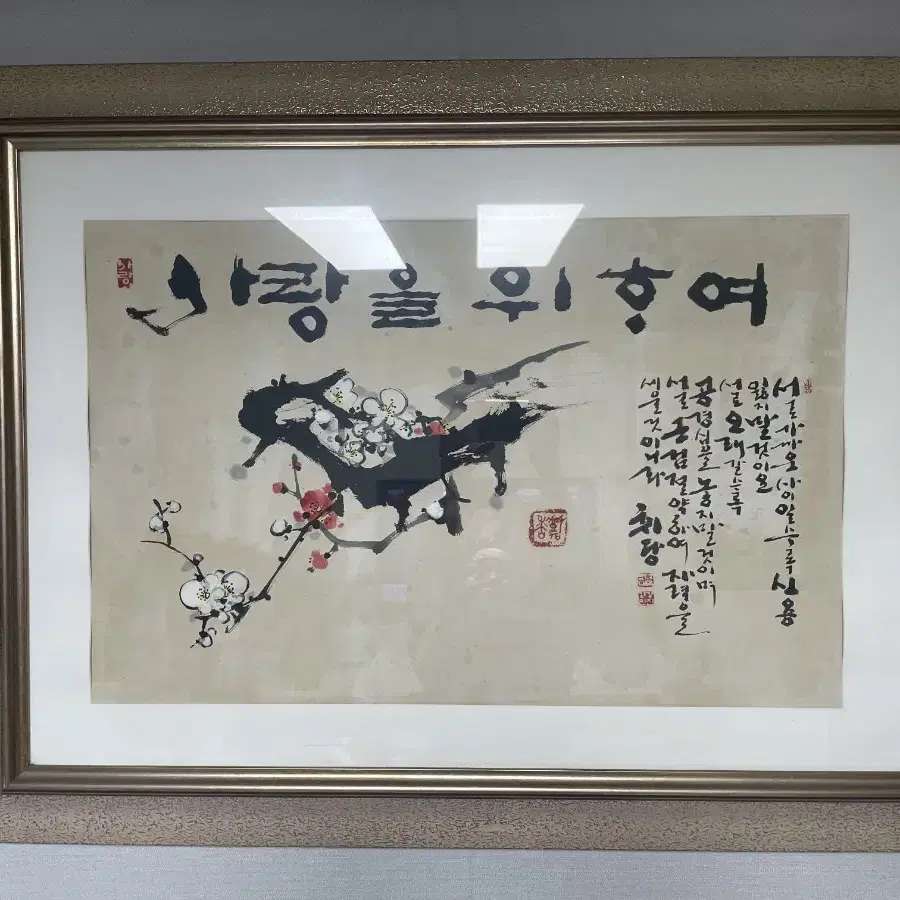 사랑을 위하여
서로 가까운 사이일수록 신용
잃지 말 것이오
서로 오래 갈수록
공경심을 놓지 말 것이며
서로 근검절약하여
세울 것이니라